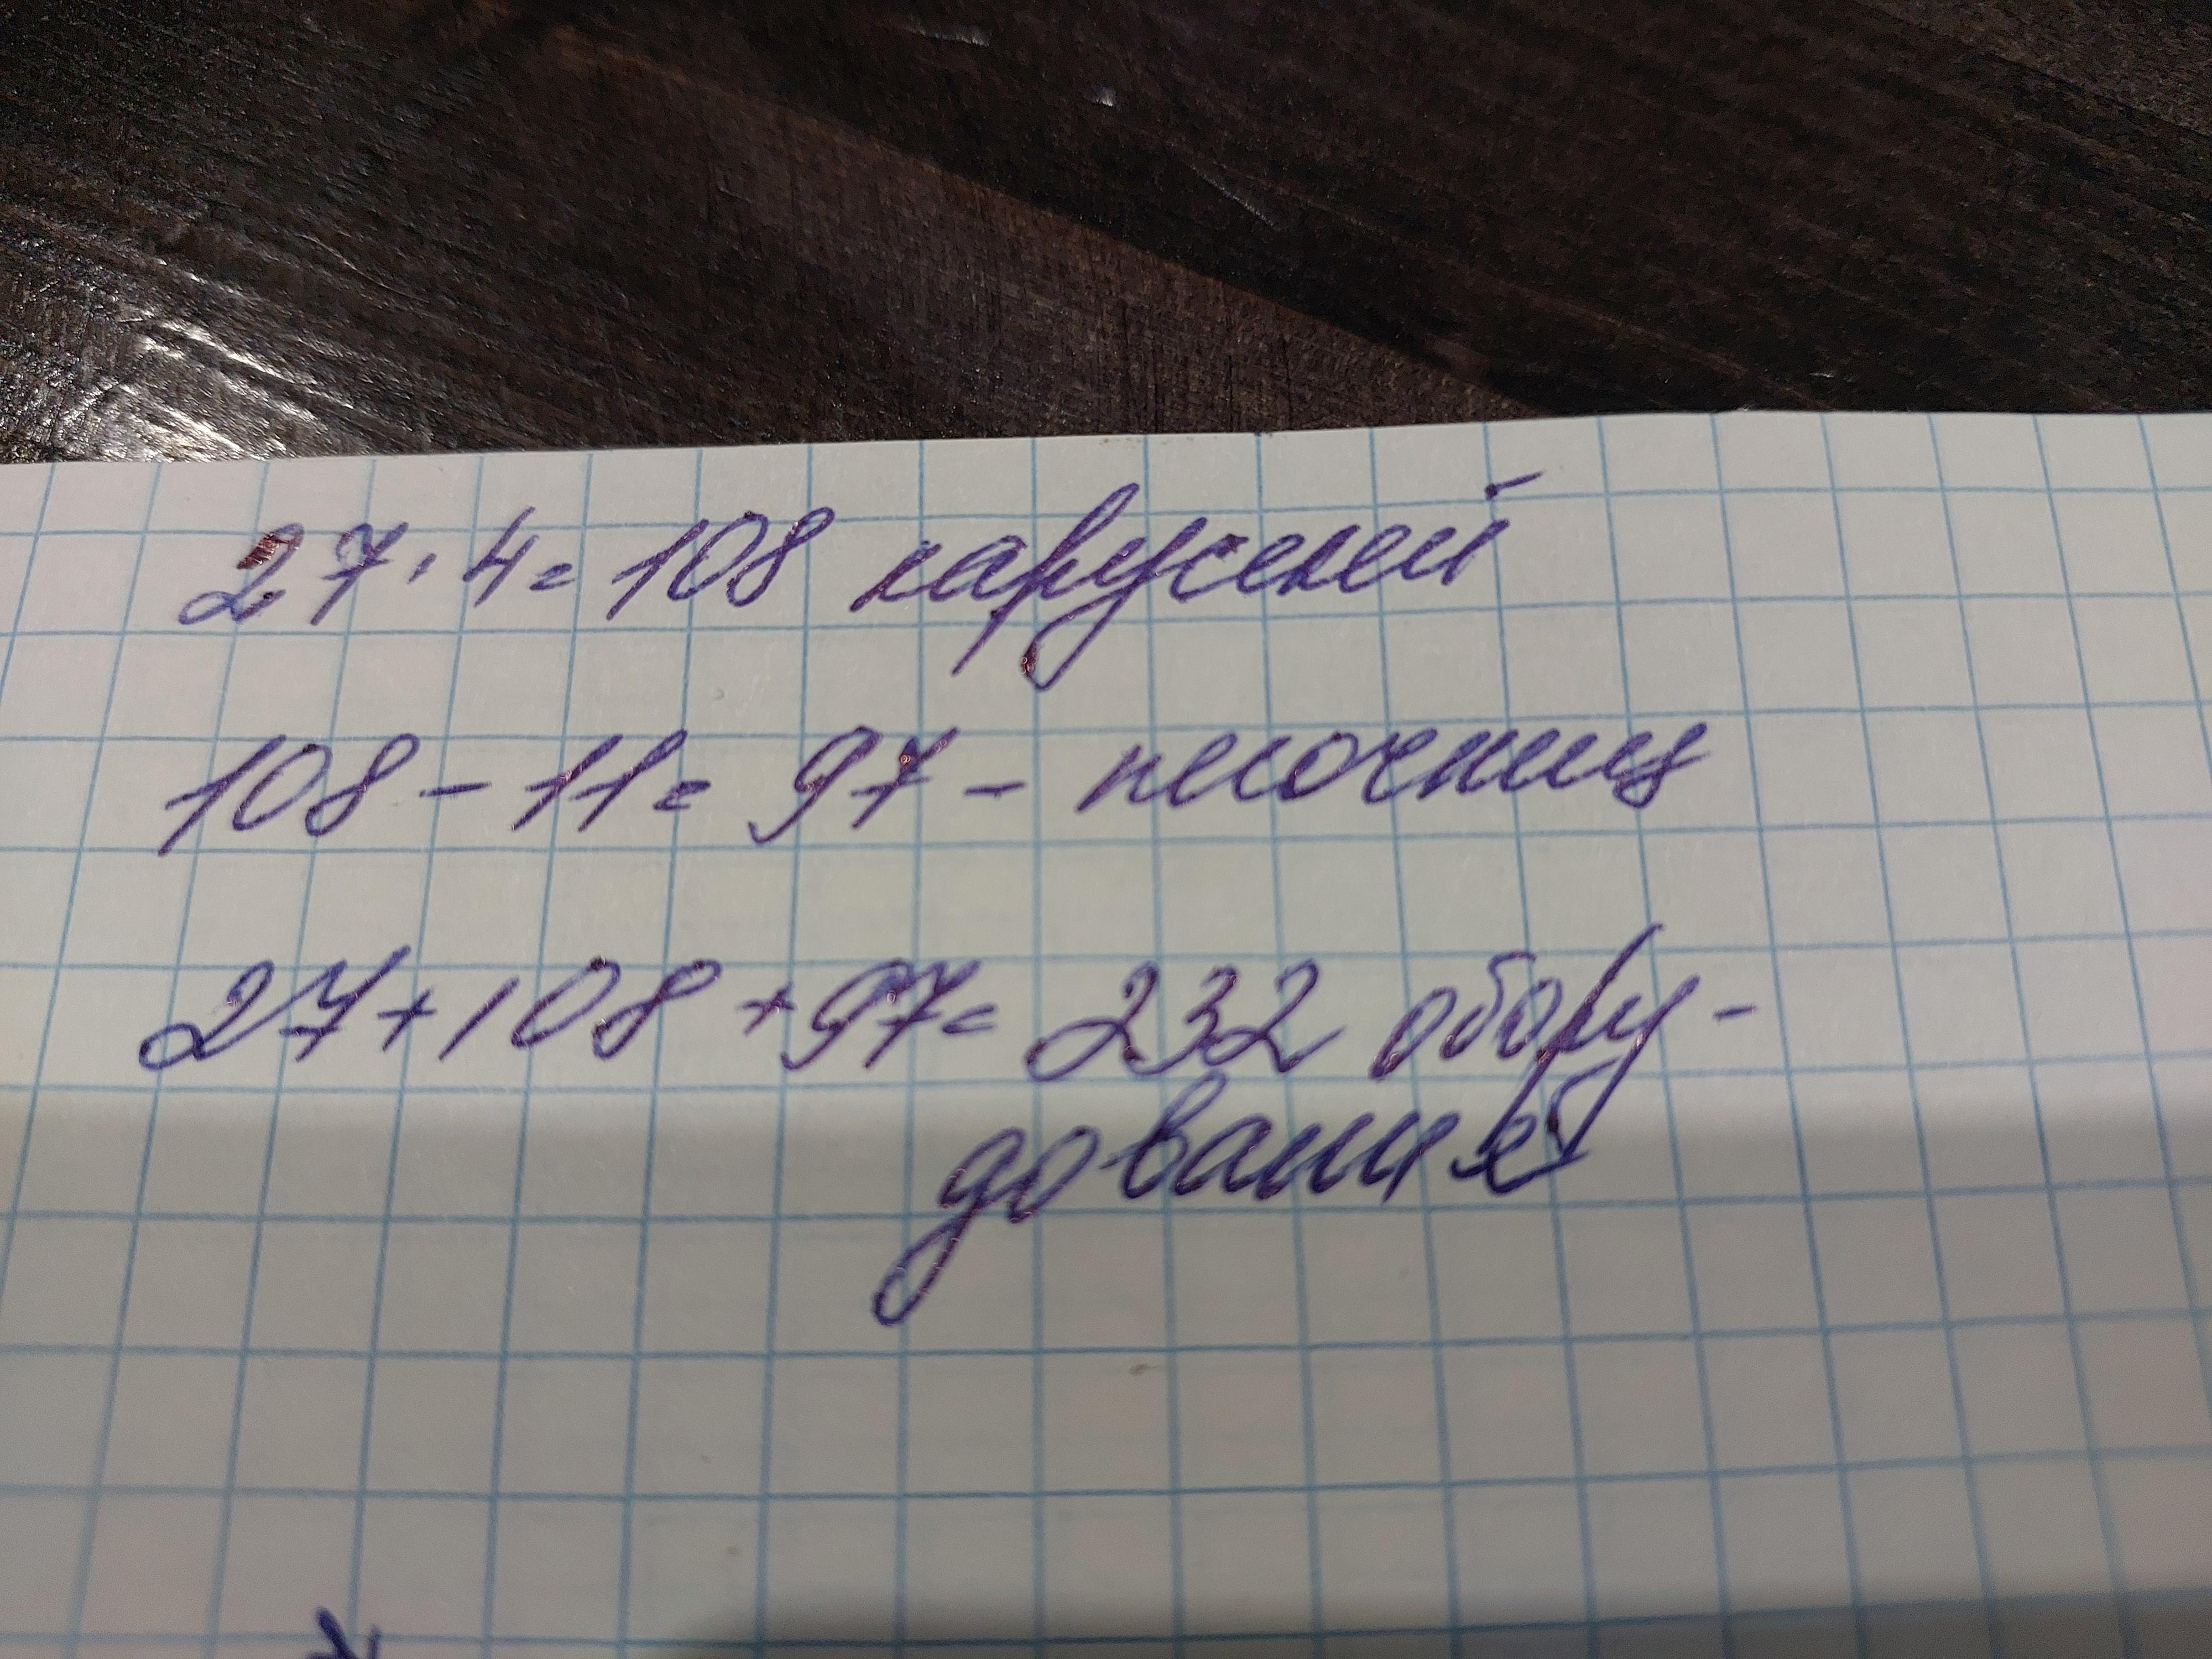 27 · 4 = 108 каруселей
108 - 11 = 97 - песочниц
27 + 108 + 97 = 232 обору-
дования